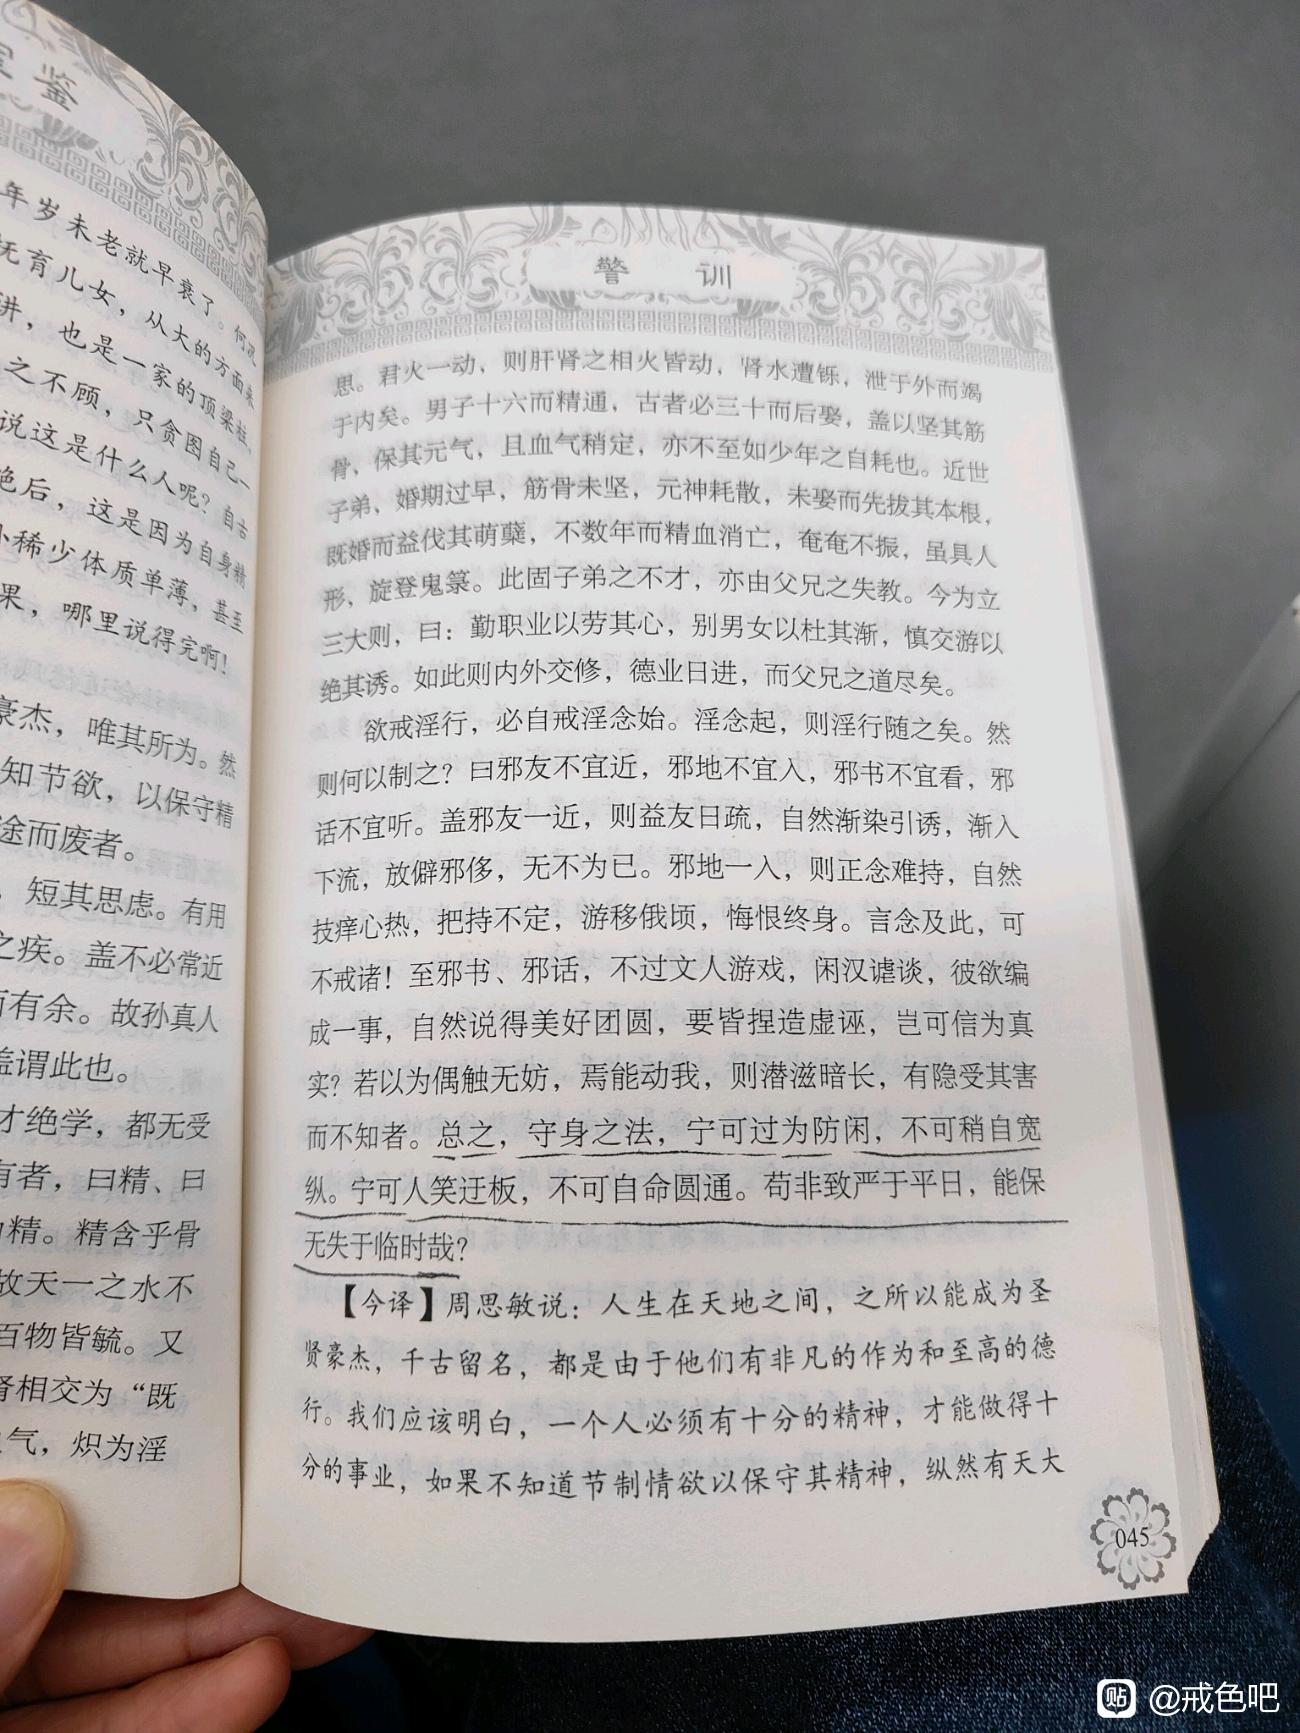 鉴
年岁未老就早衰了。何况
抚育儿女，从大的方面来
讲，也是一家的顶梁柱，
之不顾，只贪图自己一
说这是什么人呢？自古
绝后，这是因为自身精
稀少体质单薄，甚至
果，哪里说得完啊！
豪杰，唯其所为。然
知节欲，以保守精
途而废者。
，短其思虑。有用
之疾。盖不必常近
而有余。故孙真人
盖谓此也。
才绝学，都无受
有者，曰精、曰
精。精含乎骨
故天一之水不
百物皆毓。又
肾相交为“既
气，炽为淫
警 训
思。君火一动，则肝肾之相火皆动，肾水遭铄，泄于外而竭
于内矣。男子十六而精通，古者必三十而后娶，盖以坚其筋
骨，保其元气，且血气稍定，亦不至如少年之自耗也。近世
子弟，婚期过早，筋骨未坚，元神耗散，未娶而先拔其本根，
既婚而益伐其萌蘖，不数年而精血消亡，奄奄不振，虽具人
形，旋登鬼箓。此固子弟之不才，亦由父兄之失教。今为立
三大则，曰：勤职业以劳其心，别男女以杜其渐，慎交游以
绝其诱。如此则内外交修，德业日进，而父兄之道尽矣。
欲戒淫行，必自戒淫念始。淫念起，则淫行随之矣。然
则何以制之？曰邪友不宜近，邪地不宜入，邪书不宜看，邪
话不宜听。盖邪友一近，则益友日疏，自然渐染引诱，渐入
下流，放僻邪侈，无不为已。邪地一入，则正念难持，自然
技痒心热，把持不定，游移俄顷，悔恨终身。言念及此，可
不戒诸！至邪书、邪话，不过文人游戏，闲汉谑谈，彼欲编
成一事，自然说得美好团圆，要皆捏造虚诬，岂可信为真
实？若以为偶触无妨，焉能动我，则潜滋暗长，有隐受其害
而不知者。总之，守身之法，宁可过为防闲，不可稍自宽
纵。宁可人笑迂板，不可自命圆通。苟非致严于平日，能保
无失于临时哉？
【今译】周思敏说：人生在天地之间，之所以能成为圣
贤豪杰，千古留名，都是由于他们有非凡的作为和至高的德
行。我们应该明白，一个人必须有十分的精神，才能做得十
分的事业，如果不知道节制情欲以保守其精神，纵然有天大
045
贴 @戒色吧